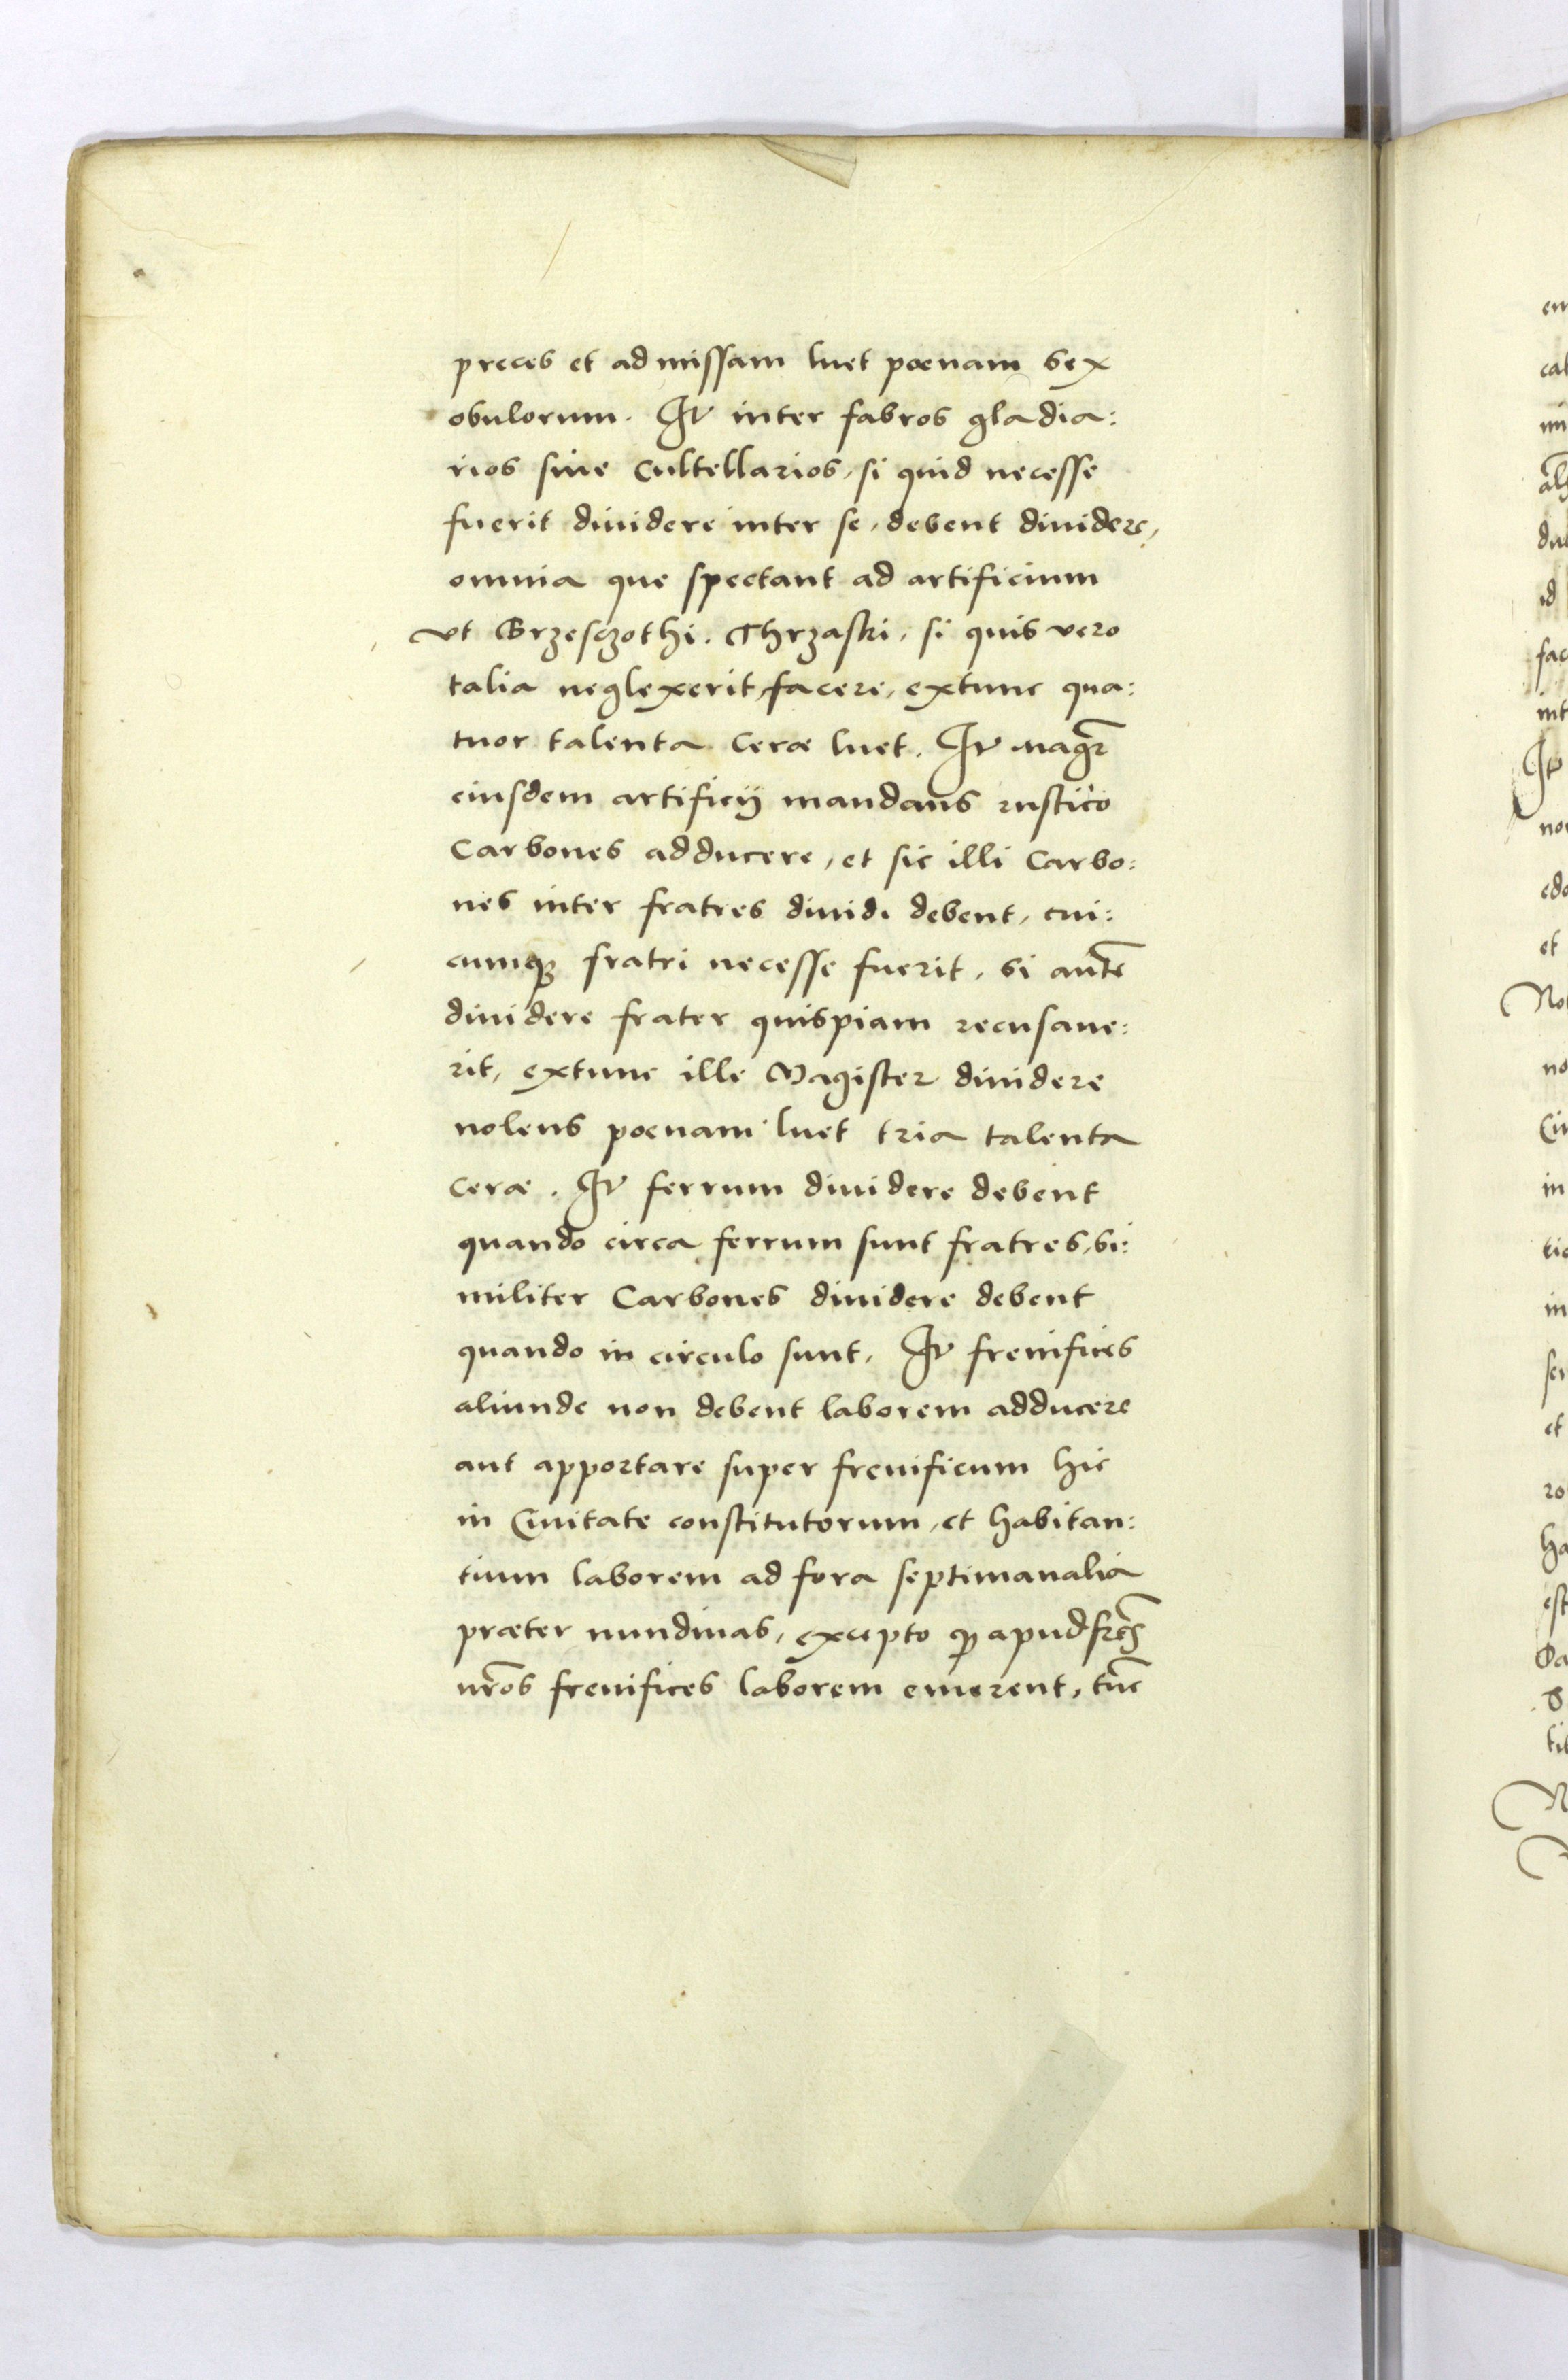 preces et ad missam luet poenam sex
obulorum. It inter fabros gladia:
rios siue Cultellarios, si quid necesse
fuerit diuidere inter se, debent diuidere,
omnia que spectant ad artificium
vt Grzesczothi. Thrzaski, si quis vero
talia neglexerit, facere, extunc qua:
tuor talenta cerae luet. It magr̃
eiusdem artificij mandans rustico
Carbones adducere, et sic illi Carbo:
nes inter fratres diuidi debent, cui:
cumqꝫ fratri necesse fuerit, si autẽ
diuidere frater quispiam recusaue:
rit, extunc ille Magister diuidere
nolens poenam luet tria talenta
cerae. It ferrum diuidere debent
quando circa ferrum sunt fratres, si:
militer Carbones diuidere debent
quando in circulo sunt. It frenifices
aliunde non debent laborem adducere
aut apportare super frenificum hic
in Ciuitate constitutorum, et habitan:
tium laborem ad fora septimanalia
praeter nundinas, excepto ꝙ apud frẽs
nr̃os frenifices laborem emerent, tũc